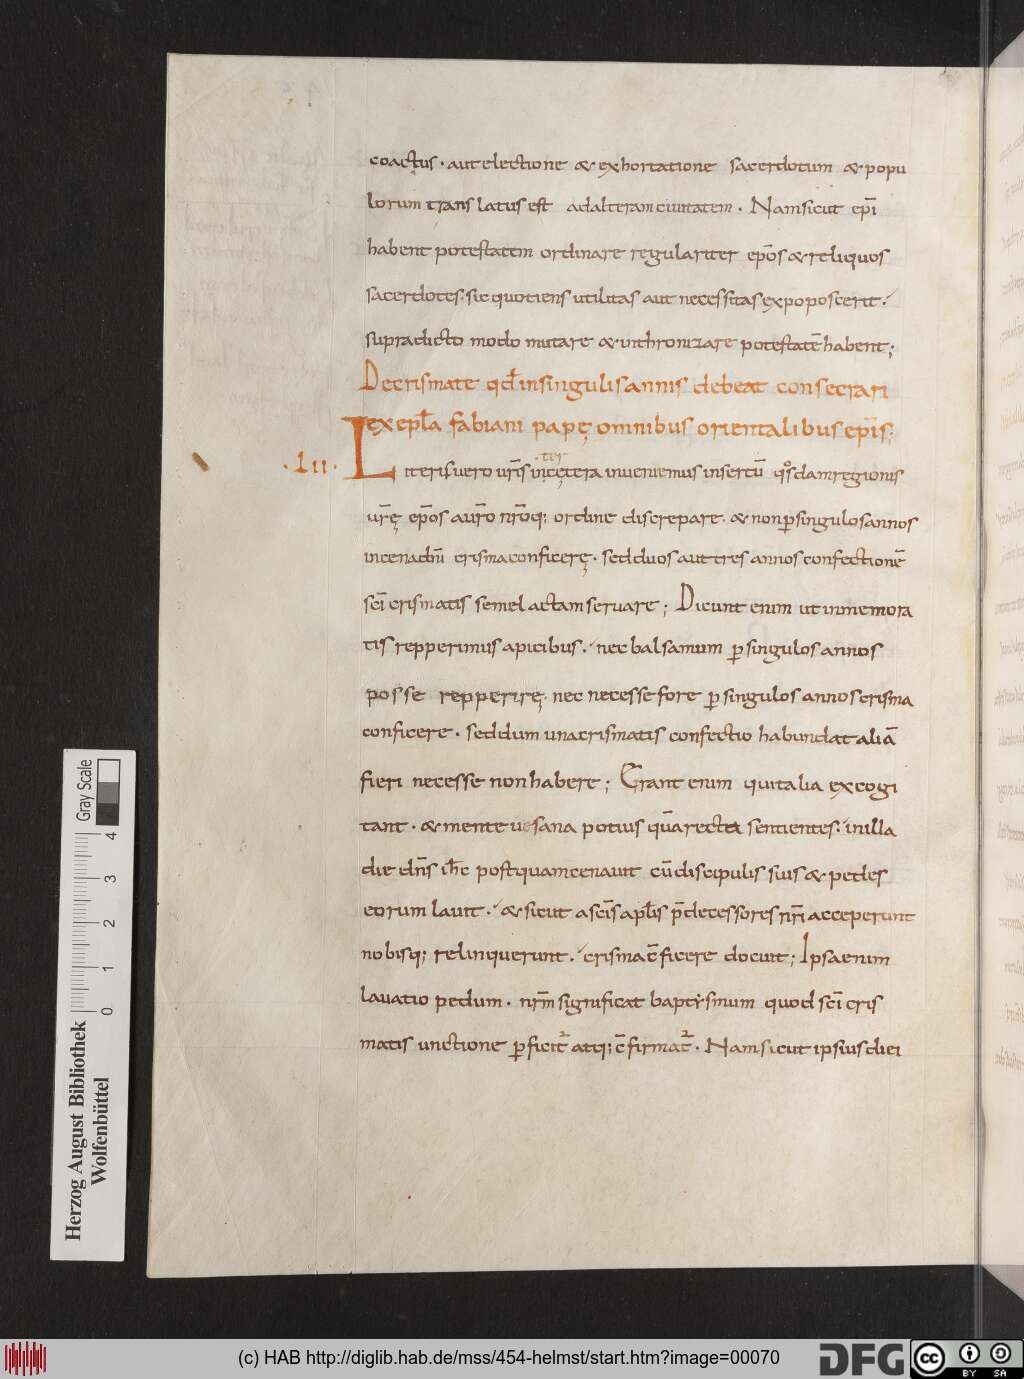 coactus · aut electione & exhortatione sacerdotum & popu
lorum translatus est ad alteram ciuitatem · Nam sicut ep̄i
habent potestatem ordinare regulariter ep̄os & reliquos
sacerdotes · sic quotiens utilitas aut necessitas expoposcerit ·
supradicto modo mutare & inthronizare potestatē habent ;
De crismate qđ in singulis annis debeat consecrari
ex epl̄a fabiani papę omnibus orientalibus ep̄is ;
· LII · Litteris uero ur̄is inter cętera inuenimus insertū qºsdam regionis
ur̄ę ep̄os a ur̄o nr̄oq; ordine discrepare · & non ꝑ singulos annos
in cena dn̄i crisma conficerę · sed duos aut tres annos confectionē
sc̄i crismatis semel actam seruare ; Dicunt enim ut in memora
tis repperimus apicibus · nec balsamum ꝑ singulos annos
posse repperirę · nec necesse fore ꝑ singulos annos crisma
conficere · sed dum una crismatis confectio habundat aliā
fieri necesse non habere ; Errant enim qui talia excogi
tant · & mente uesana potius quā recta sentientes · in illa
die dn̄s ih̄c postquam cenauit cū discipulis suis & pedes
eorum lauit · & sicut a sc̄is apl̄is p̄decessores nr̄i acceperunt
nobisq; relinquerunt · crisma c̄ficere docuit ; Ipsa enim
lauatio pedum · nr̄m significat baptysmum quod sc̄i cris
matis unctione ꝑficit᷑ atq; c̄firmat᷑ · Nam sicut ipsius diei
Gray Scale
0 1 2 3 4
Herzog August Bibliothek
Wolfenbüttel
(c) HAB http://diglib.hab.de/mss/454-helmst/start.htm?image=00070
DFG
CC BY SA